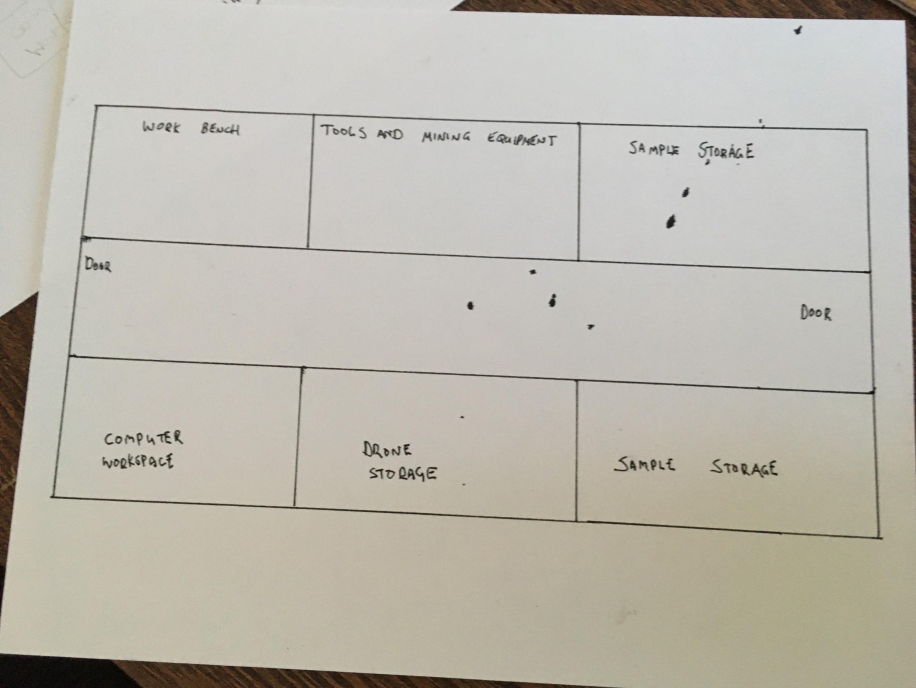 WORK BENCH
TOOLS AND MINING EQUIPMENT
SAMPLE STORAGE
DOOR
DOOR
COMPUTER
WORKSPACE
DRONE
STORAGE
SAMPLE STORAGE